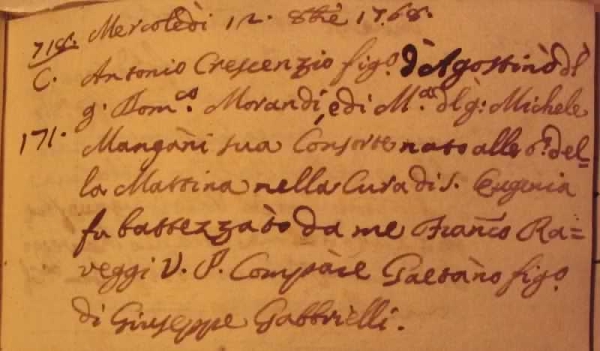 718. Mercoledì 12. 8bre 1768.
C. Antonio Crescenzio figo. d'Agostino dl
q. Domco. Morandi, e di Ma. dl q: Michele
171. Mangani sua Consorte nato alle 6. del=
la Mattina nella Cura di S. Eugenia
fu battezzato da me Franco Ra=
veggi V. P. Compare Gaetano figo.
di Giuseppe Gabbrielli.